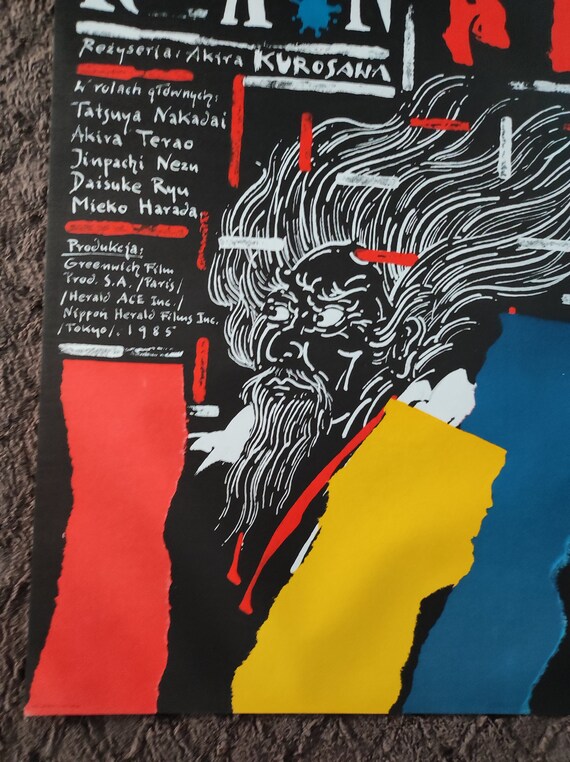 RAN
Reżyseria: Akira KUROSAWA
W rolach głównych:
Tatsuya Nakadai
Akira Terao
Jinpachi Nezu
Daisuke Ryu
Mieko Harada
Produkcja:
Greenwich Film
Prod. S.A. /Paris/
/Herald ACE Inc./
Nippon Herald Films Inc.
/Tokyo/. 1985